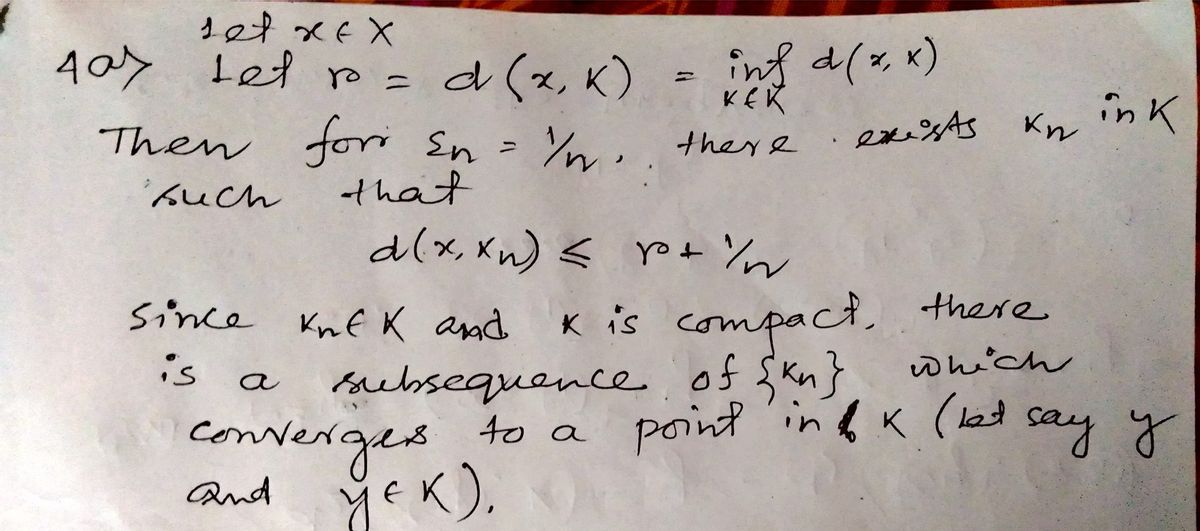 Let x ∈ X
4a> Let r = d(x, K) = inf d(x, k)
k ∈ K
Then for εn = 1/n, there exists kn in K
such that
d(x, kn) ≤ r + 1/n
Since kn ∈ K and K is compact, there
is a subsequence of {kn} which
converges to a point in K (let say y
and y ∈ K).